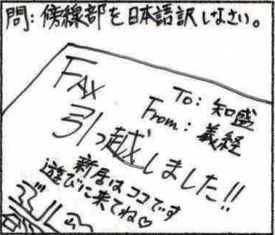 問: 傍線部を日本語訳しなさい。
FAX
To: 知盛
From: 義経
引っ越しました!!
新居はココです
遊びに来てね♡